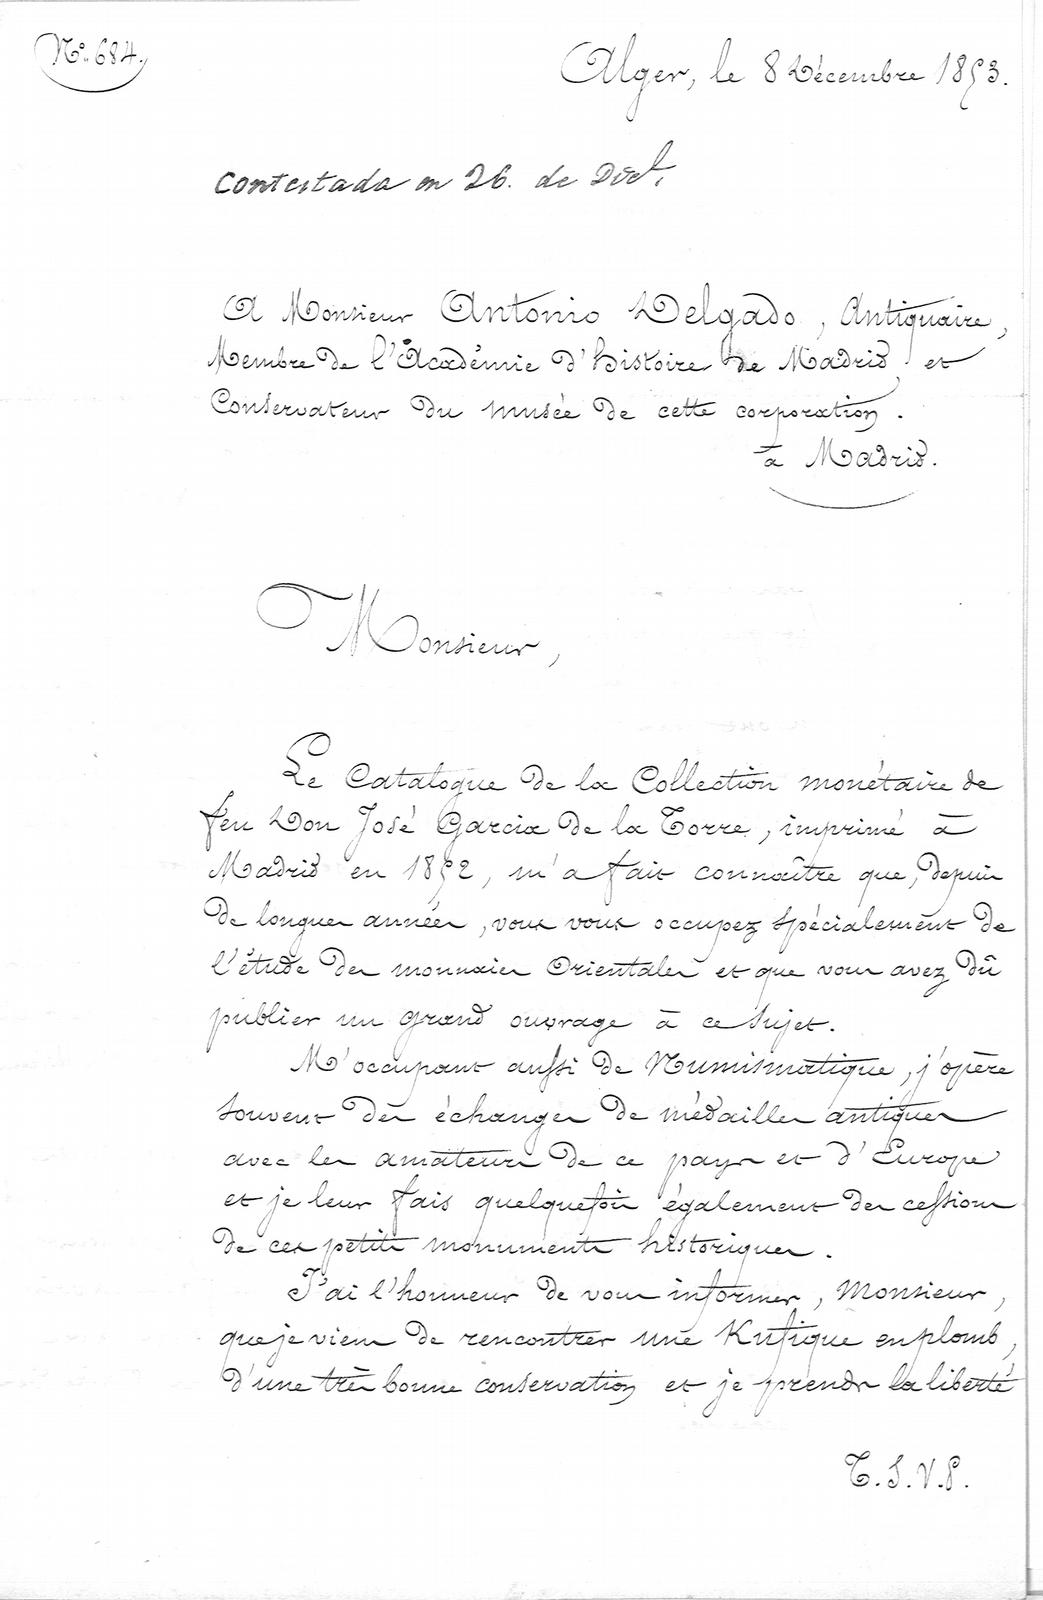 N.° 684.
Alger, le 8 Décembre 1853.
Contestada en 26. de Dice.
A Monsieur Antonio Delgado, Antiquaire,
Membre de l'Académie d'histoire de Madrid, et
Conservateur du musée de cette corporation.
à Madrid.
Monsieur,
Le Catalogue de la Collection monétaire de
feu Don José Garcia de la Torre, imprimé à
Madrid en 1852, m'a fait connaître que, depuis
de longues années, vous vous occupez spécialement de
l'étude des monnaies Orientales et que vous avez dû
publier un grand ouvrage à ce sujet.
M'occupant aussi de Numismatique, j'opère
souvent des échanges de médailles antiques
avec les amateurs de ce pays et d'Europe
et je leur fais quelquefois également des cessions
de ces petits monuments historiques.
J'ai l'honneur de vous informer, Monsieur,
que je viens de rencontrer une Kufique en plomb,
d'une très bonne conservation et je prends la liberté
T.S.V.P.